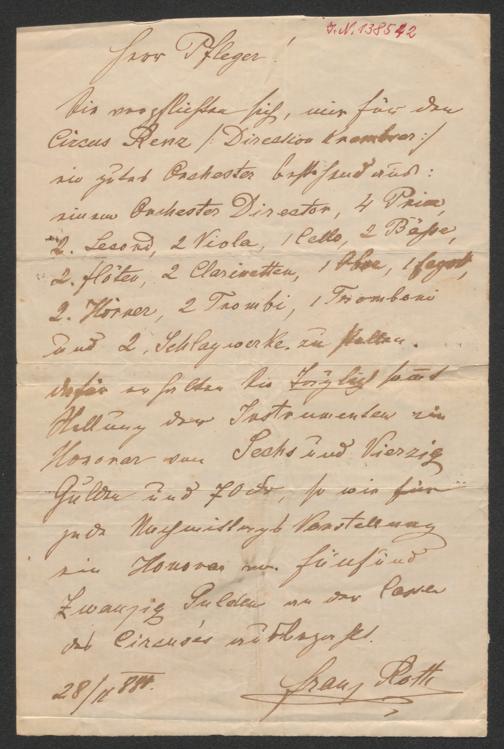 J.N. 138542
Herr Pfleger!
Sie verpflichten sich, mir für den
Circus Renz /: Direction
ein gutes Orchester bestehend aus:
einem Orchester Director, 4 Prim,
2. Second, 2 Viola, 1 Cello, 2 Bässe,
2. flöten, 2 Clarinetten, 1 Oboe, 1 fagott,
2. Hörner, 2 Trombi, 1 Tromboni
und 2. Schlagwerke zu stellen.
dafür erhalten Sie täglich sammt
Stellung der Instrumenten ein
Honorar von Sechs und Vierzig
Gulden und 70 kr, so wie für
jede Nachmittags Vorstellung
ein Honorar von fünfund
Zwanzig Gulden an der Casse
des Circuses ausbezahlt.
28/II
Franz Roth